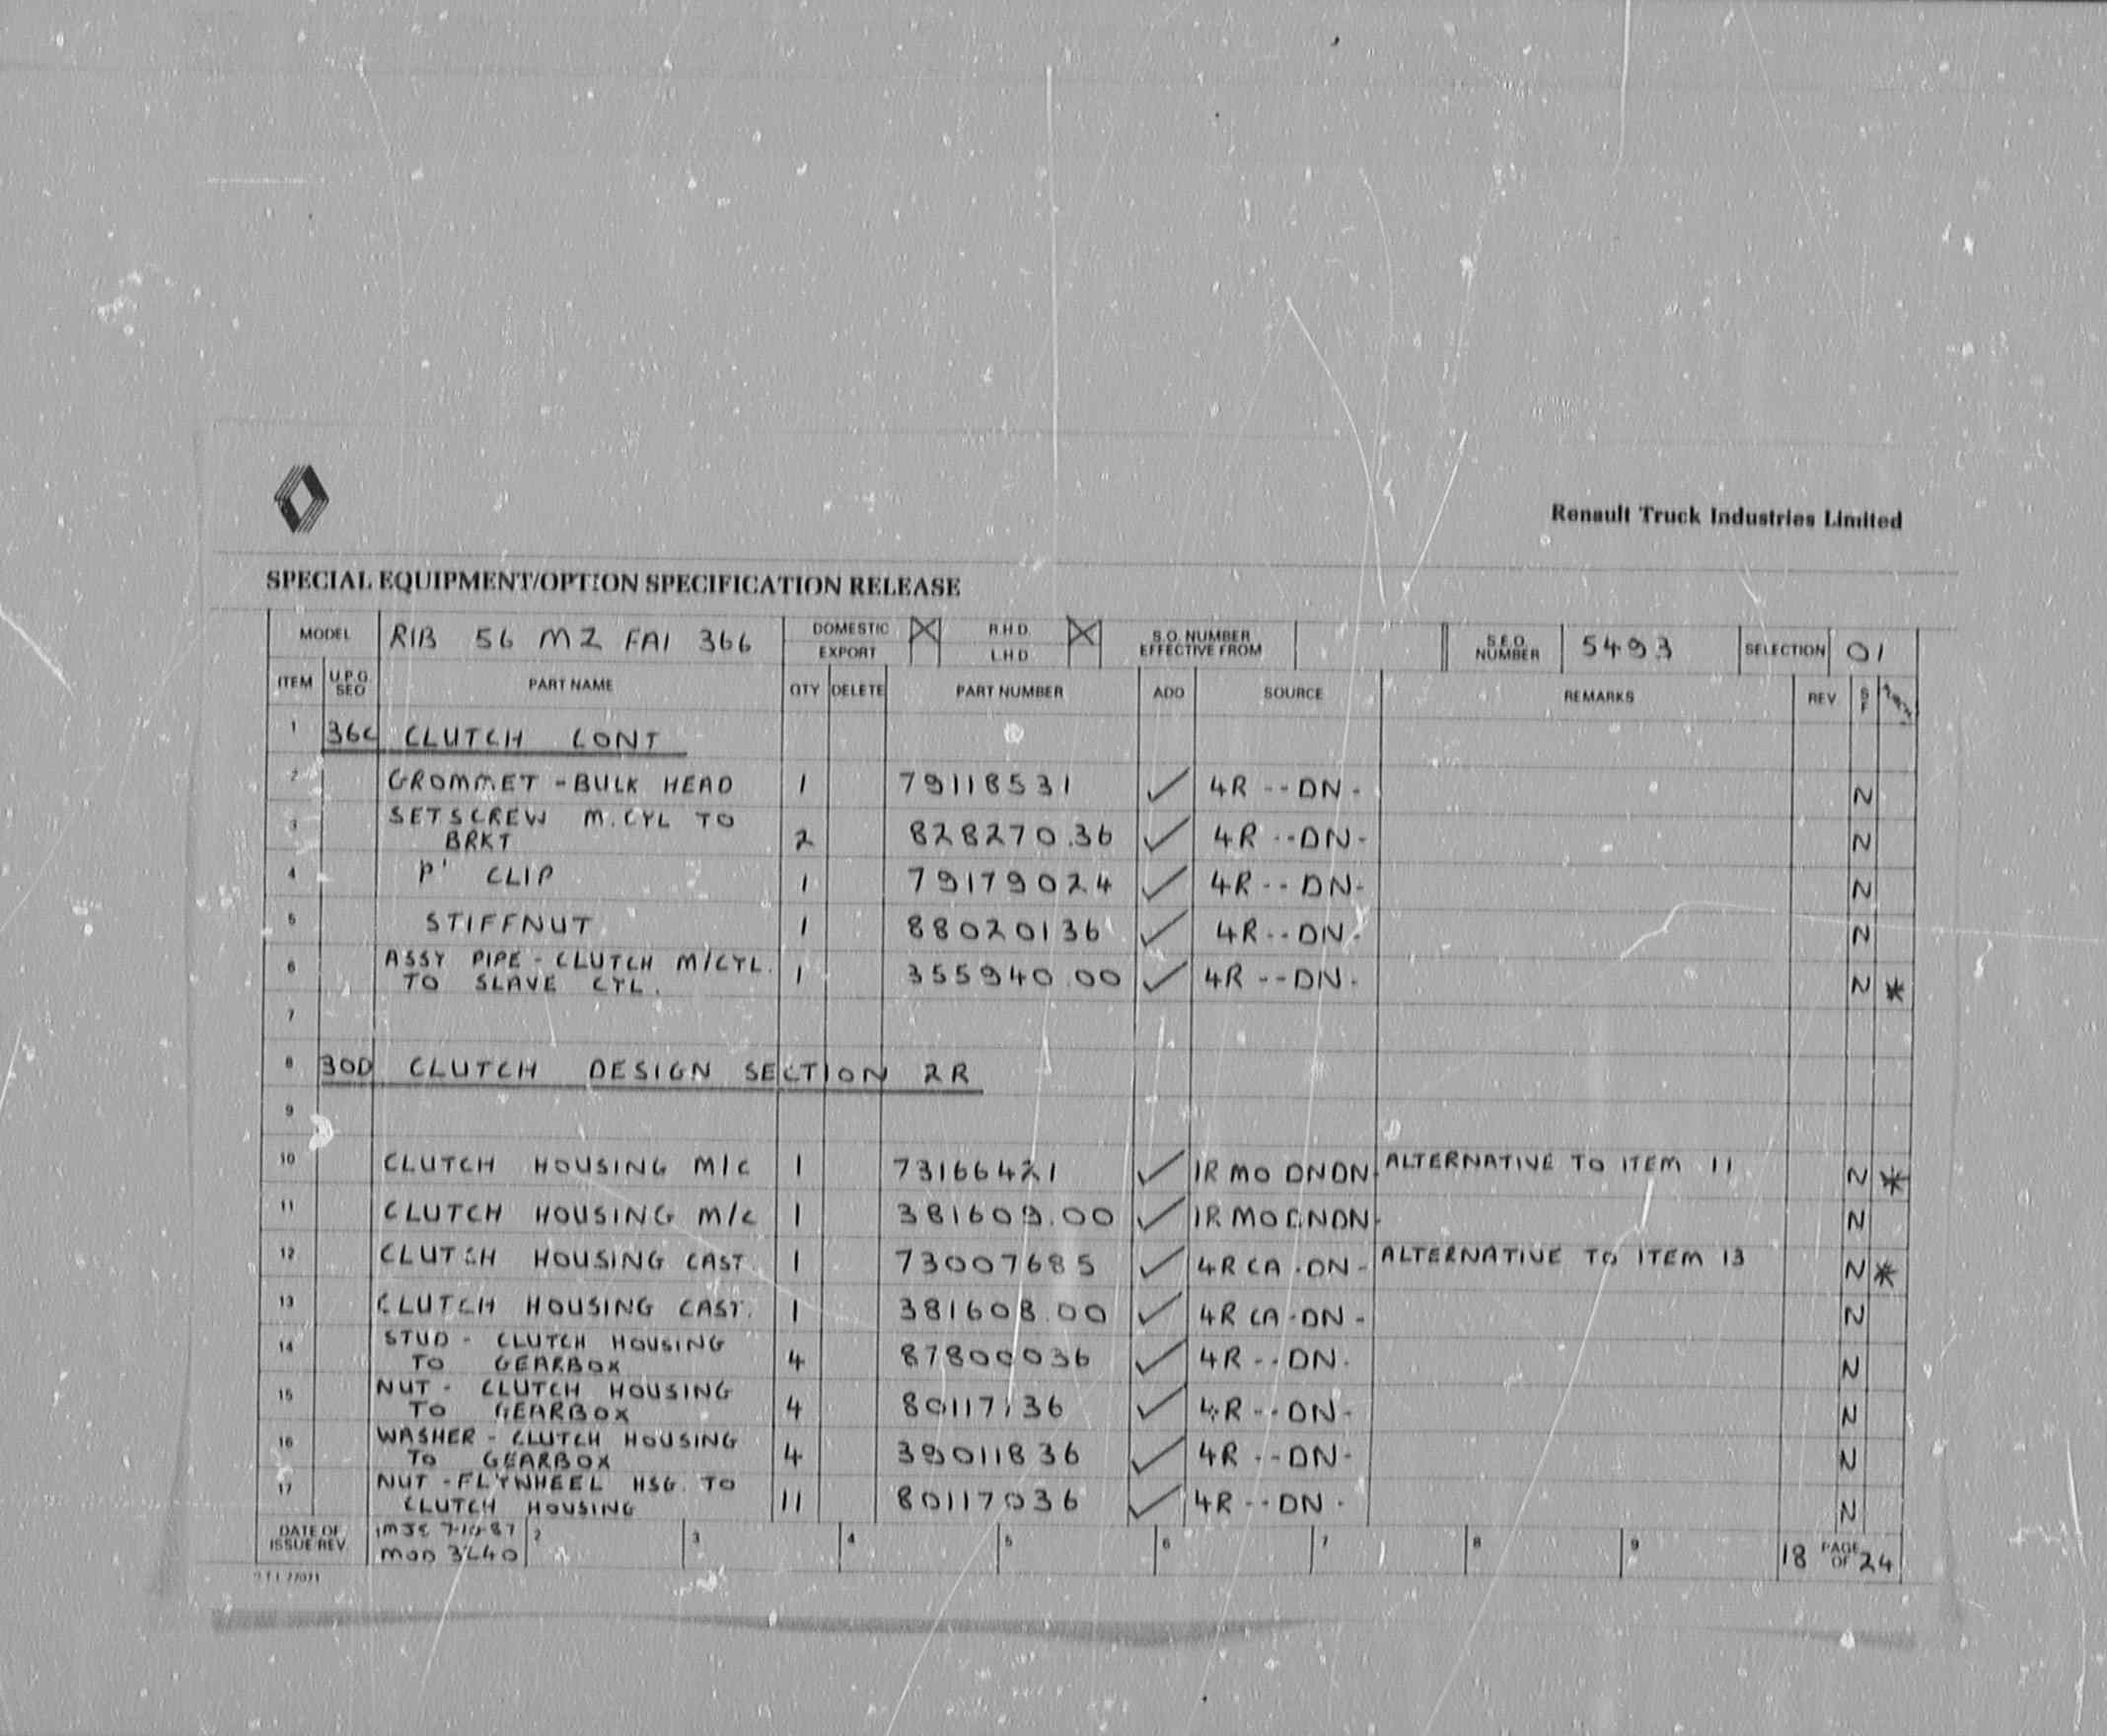 Renault Truck Industries Limited
SPECIAL EQUIPMENT/OPTION SPECIFICATION RELEASE
MODEL RIB 56 MZ FAI 366 DOMESTIC R.H.D. S.O. NUMBER EFFECTIVE FROM S.E.O. NUMBER 5493 SELECTION 01
EXPORT L.H.D.
ITEM U.P.G. SEQ PART NAME QTY DELETE PART NUMBER ADD SOURCE REMARKS REV S F
1 36C CLUTCH CONT
2 GROMMET - BULK HEAD 1 79118531 ✓ 4R --DN- N
3 SETSCREW M.CYL TO
BRKT 2 828270.36 ✓ 4R --DN- N
4 P' CLIP 1 79179024 ✓ 4R --DN- N
5 STIFFNUT 1 88020136 ✓ 4R --DN- N
6 ASSY PIPE - CLUTCH M/CYL.
TO SLAVE CYL. 1 355940.00 ✓ 4R --DN- N *
7
8 30D CLUTCH DESIGN SECTION 2R
9
10 CLUTCH HOUSING M/C 1 73166421 ✓ 1R MO DNDN- ALTERNATIVE TO ITEM 11 N *
11 CLUTCH HOUSING M/C 1 381609.00 ✓ 1R MO DNDN- N
12 CLUTCH HOUSING CAST. 1 73007685 ✓ 4R CA-DN- ALTERNATIVE TO ITEM 13 N *
13 CLUTCH HOUSING CAST. 1 381608.00 ✓ 4R CA-DN- N
14 STUD - CLUTCH HOUSING
TO GEARBOX 4 87800036 ✓ 4R --DN- N
15 NUT - CLUTCH HOUSING
TO GEARBOX 4 80117136 ✓ 4R --DN- N
16 WASHER - CLUTCH HOUSING
TO GEARBOX 4 39011836 ✓ 4R --DN- N
17 NUT - FLYWHEEL HSG. TO
CLUTCH HOUSING 11 80117036 ✓ 4R --DN- N
DATE OF ISSUE/REV. 2 3 4 5 6 7 8 9 18 PAGE OF 24